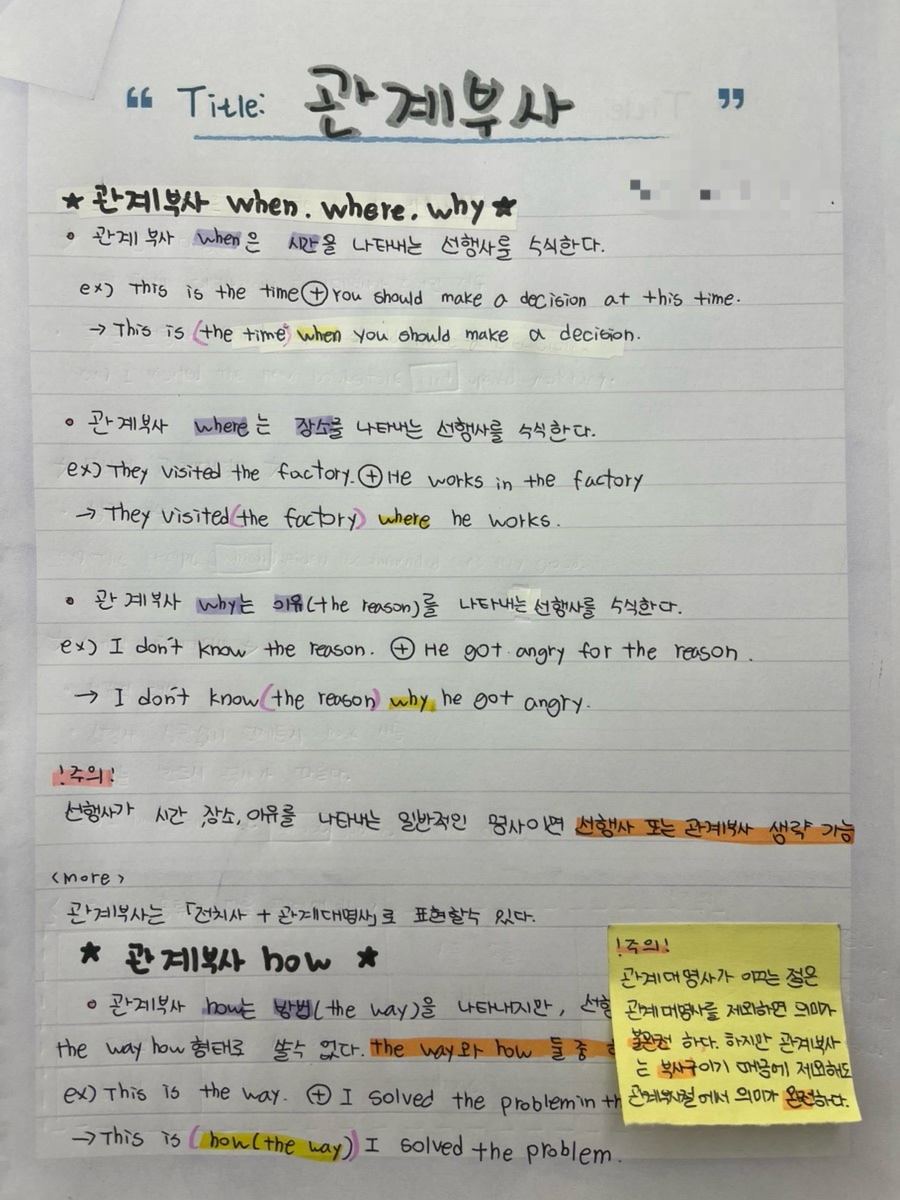 “ Title: 관계부사 ”
★ 관계부사 when. where. why ★
• 관계 부사 when은 시간을 나타내는 선행사를 수식한다.
ex) This is the time ⊕ You should make a decision at this time.
→ This is (the time) when you should make a decision.
• 관계부사 where는 장소를 나타내는 선행사를 수식한다.
ex) They visited the factory. ⊕ He works in the factory
→ They visited (the factory) where he works.
• 관계부사 why는 이유(the reason)를 나타내는 선행사를 수식한다.
ex) I don't know the reason. ⊕ He got angry for the reason.
→ I don't know (the reason) why he got angry.
!주의!
선행사가 시간, 장소, 이유를 나타내는 일반적인 명사이면 선행사 또는 관계부사 생략 가능
<more>
관계부사는 「전치사 + 관계대명사」로 표현할수 있다.
★ 관계부사 how ★
• 관계부사 how는 방법(the way)을 나타내지만, 선행
the way how 형태로 쓸수 없다. the way와 how 둘 중
ex) This is the way. ⊕ I solved the problem in th
→ This is (how(the way)) I solved the problem.
!주의!
관계대명사가 이끄는 절은
관계대명사를 제외하면 의미가
불완전 하다. 하지만 관계부사
는 부사구이기 때문에 제외해도
관계부사절에서 의미가 완전하다.